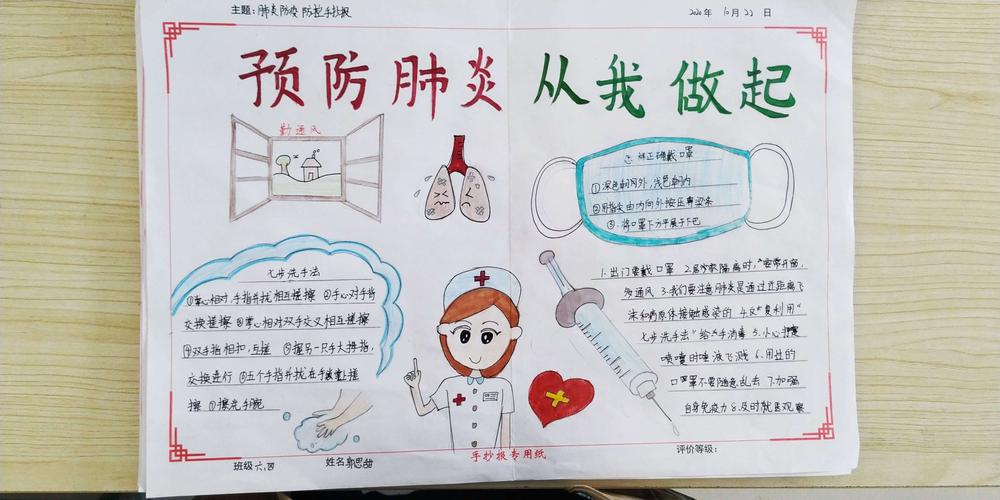 主题:肺炎防疫 防控手抄报
2020年 10月22 日
预防肺炎 从我做起
勤通风
七步洗手法
①掌心相对,手指并拢相互搓擦 ②手心对手背
交换搓擦 ③掌心相对双手交叉相互搓擦
④双手指相扣,互搓 ⑤握另一只手大拇指,
交换进行 ⑥五个手指并拢在手
擦 ⑦擦洗手腕
正确戴口罩
①深色朝向外,浅色朝内
②用指尖由内向外按压鼻梁条
③将口罩下方平展于下巴
1.出门要戴 口罩 2.居家隔离时,窗常开窗,
多通风 3.我们要注意肺炎是通过近距离飞
沫和病原体接触感染的 4.反复利用"
七步洗手法"给手消毒 5.小心
喷嚏时唾液飞溅 6.用过的
口罩不要随意乱丢 7.加强
自身免疫力 8.及时就医观察
班级 六.四
姓名 郭思甜
手抄报专用纸
评价等级: